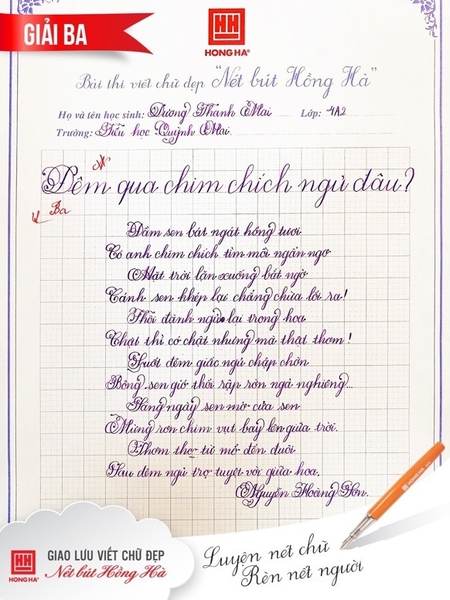 GIẢI BA
HH
HONG HA®
Bài thi viết chữ đẹp "Nét bút Hồng Hà"
Họ và tên học sinh: Dương Thanh Mai Lớp: 4A2
Trường: Tiểu học Quỳnh Mai
Ba
Đêm qua chim chích ngủ đâu?
Đầm sen bát ngát hồng tươi
Có anh chim chích tìm mồi ngẩn ngơ
Mặt trời lặn xuống bất ngờ
Cánh sen khép lại chẳng chừa lối ra!
Thôi đành ngủ lại trong hoa
Chật thì có chật nhưng mà thật thơm!
Suốt đêm giấc ngủ chập chờn
Bông sen gió thổi rập rờn ngả nghiêng...
Sáng ngày sen mở cửa sen
Mừng rơn chim vụt bay lên giữa trời.
Thơm tho từ mỏ đến đuôi
Sau đêm ngủ trọ tuyệt vời giữa hoa.
Nguyễn Hoàng Sơn.
HH
HONG HA®
GIAO LƯU VIẾT CHỮ ĐẸP
Nét bút Hồng Hà
Luyện nét chữ
Rèn nét người
HONG HA